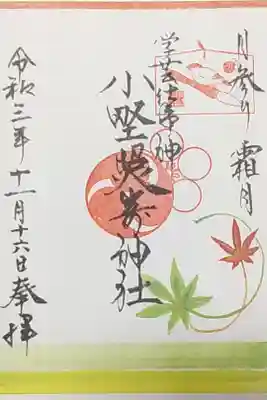 月参り 霜月
学芸の神
小野照崎神社
令和三年十一月十六日 奉拝